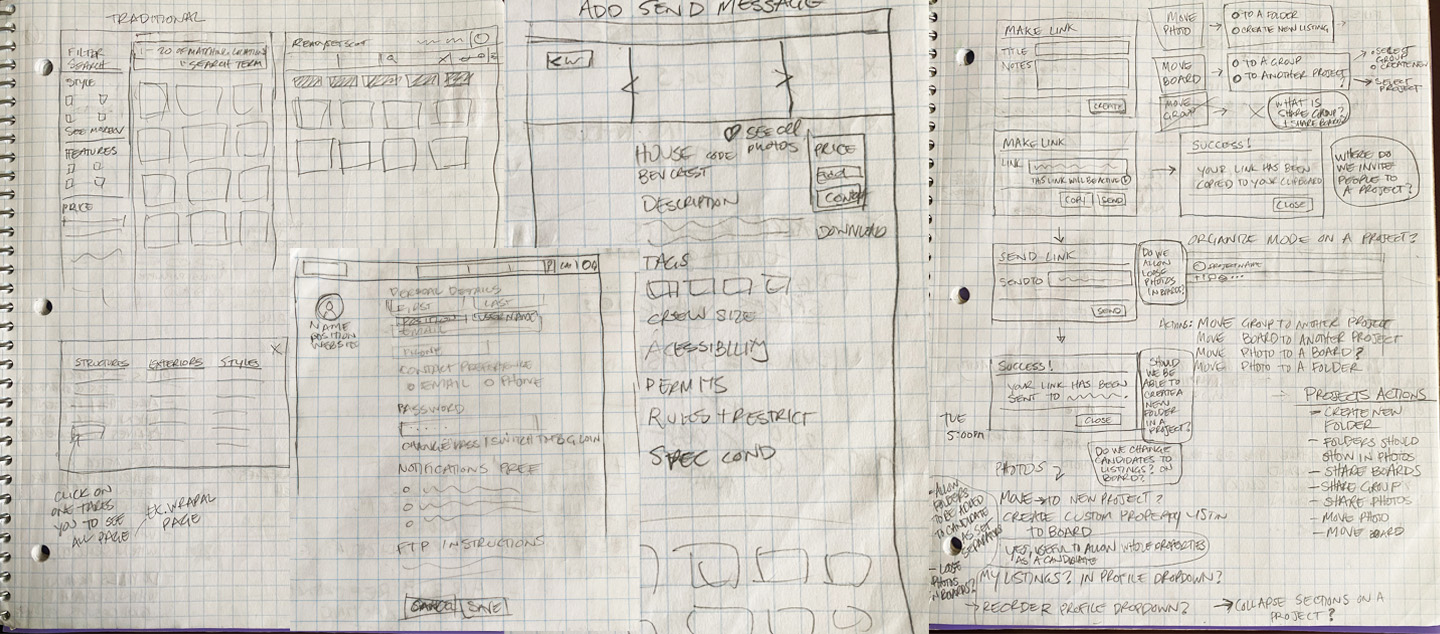 TRADITIONAL
FILTER
SEARCH
STYLE
FEATURES
PRICE
1 - 20 OF MATCHING LOCATIONS
SEARCH TERM
STRUCTURES EXTERIORS STYLES
X
CLICK ON
ONE TAKES
YOU TO SEE
ALL PAGE
PAGE
ADD SEND MESSAGE
KW
SEE ALL
PHOTOS
HOUSE CODE
DESCRIPTION
PRICE
DOWNLOAD
TAGS
CREW SIZE
ACESSIBILITY
PERMITS
RULES + RESTRICT
SPEC COND
NAME
POSITION
WEBSITE
PERSONAL DETAILS
FIRST LAST
POSITION USERNAME
EMAIL
PHONE
CONTACT PREFERENCE
EMAIL PHONE
PASSWORD
NOTIFICATIONS PREF
FTP INSTRUCTIONS
CANCEL SAVE
MAKE LINK
TITLE
NOTES
CREATE
MOVE
PHOTO
TO A FOLDER
CREATE NEW LISTING
MOVE
BOARD
TO A GROUP
TO ANOTHER PROJECT?
SELECT
GROUP
CREATE NEW
SELECT
PROJECT
MOVE
GROUP
X
WHAT IS
SHARE GROUP?
+ SHARE BOARD?
MAKE LINK
LINK
THIS LINK WILL BE ACTIVE
COPY SEND
SUCCESS!
YOUR LINK HAS BEEN
COPIED TO YOUR CLIPBOARD
CLOSE
WHERE DO
WE INVITE
PEOPLE TO
A PROJECT?
SEND LINK
SEND TO
SEND
DO WE
ALLOW
LOOSE
PHOTOS
IN BOARDS?
ORGANIZE MODE ON A PROJECT?
PROJECT NAME
ACTIONS: MOVE GROUP TO ANOTHER PROJECT
MOVE BOARD TO ANOTHER PROJECT
MOVE PHOTO TO A BOARD?
MOVE PHOTO TO A FOLDER
SUCCESS!
YOUR LINK HAS BEEN
SENT TO
CLOSE
SHOULD
WE BE
ABLE TO
CREATE A
NEW
FOLDER
IN A
PROJECT?
TUE
5:00PM
PROJECTS ACTIONS
- CREATE NEW
FOLDER
- FOLDERS SHOULD
SHOW IN PHOTOS
- SHARE BOARDS
- SHARE GROUP
- SHARE PHOTOS
- MOVE PHOTO
- MOVE BOARD
DO WE CHANGE
CANDIDATES TO
LISTINGS? ON
BOARD?
PHOTOS
MOVE → TO NEW PROJECT?
CREATE CUSTOM PROPERTY LISTIN
TO BOARD
YES, USEFUL TO ALLOW WHOLE PROPERTIES
AS A CANDIDATE
- ALLOW
FOLDERS
TO BE ADDED
TO CANDIDATE
AS SET
SEPARATORS
- LOOSE
PHOTOS
IN BOARDS?
MY LISTINGS? IN PROFILE DROPDOWN?
→ REORDER PROFILE DROPDOWN?
→ COLLAPSE SECTIONS ON A
PROJECT?